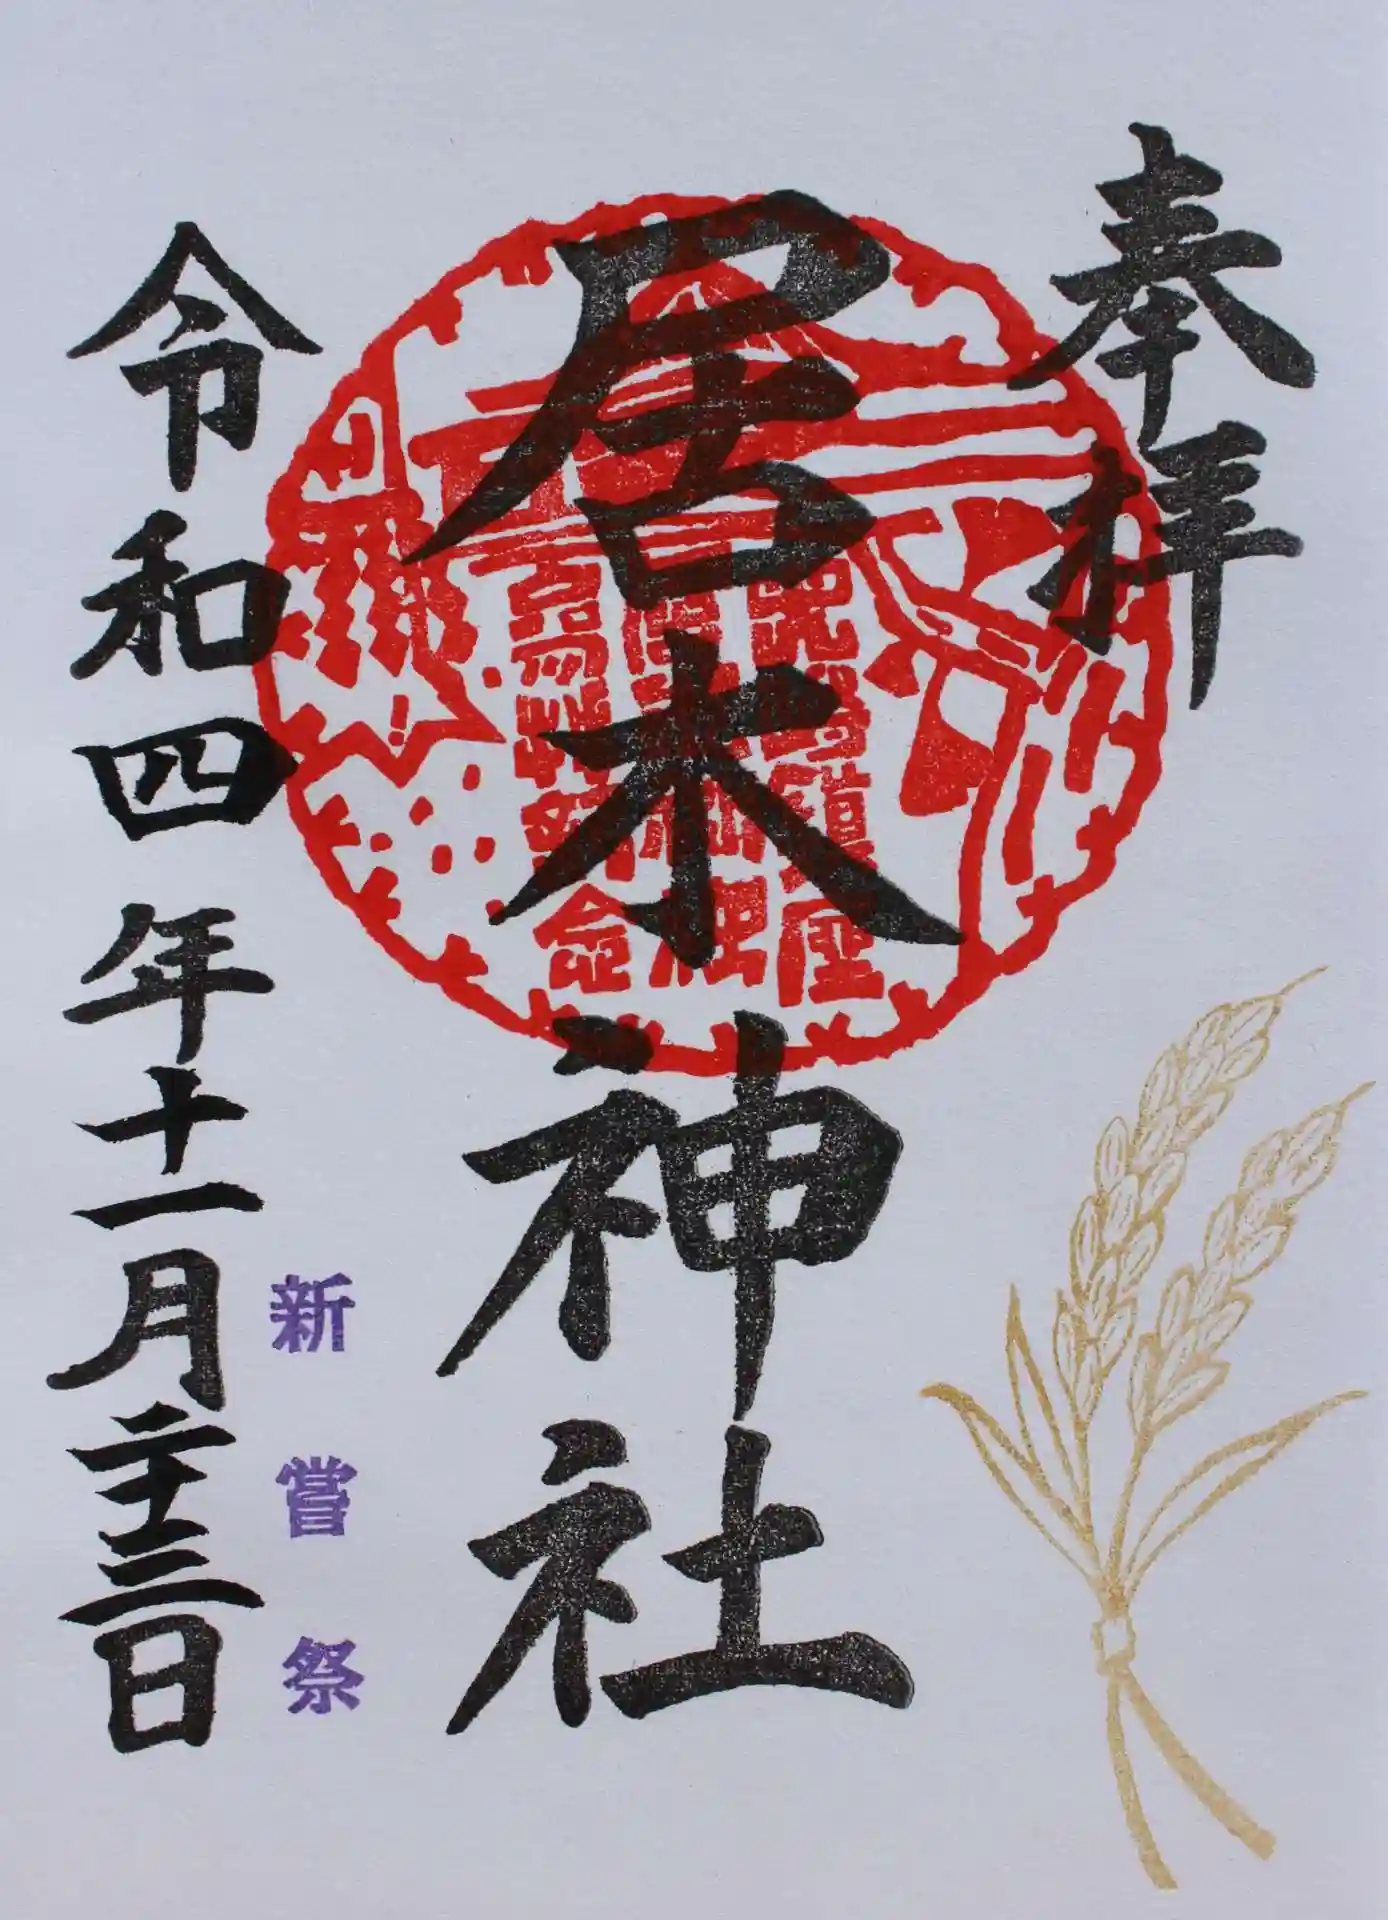 奉拝
居木神社
新嘗祭
令和四年十一月二十三日